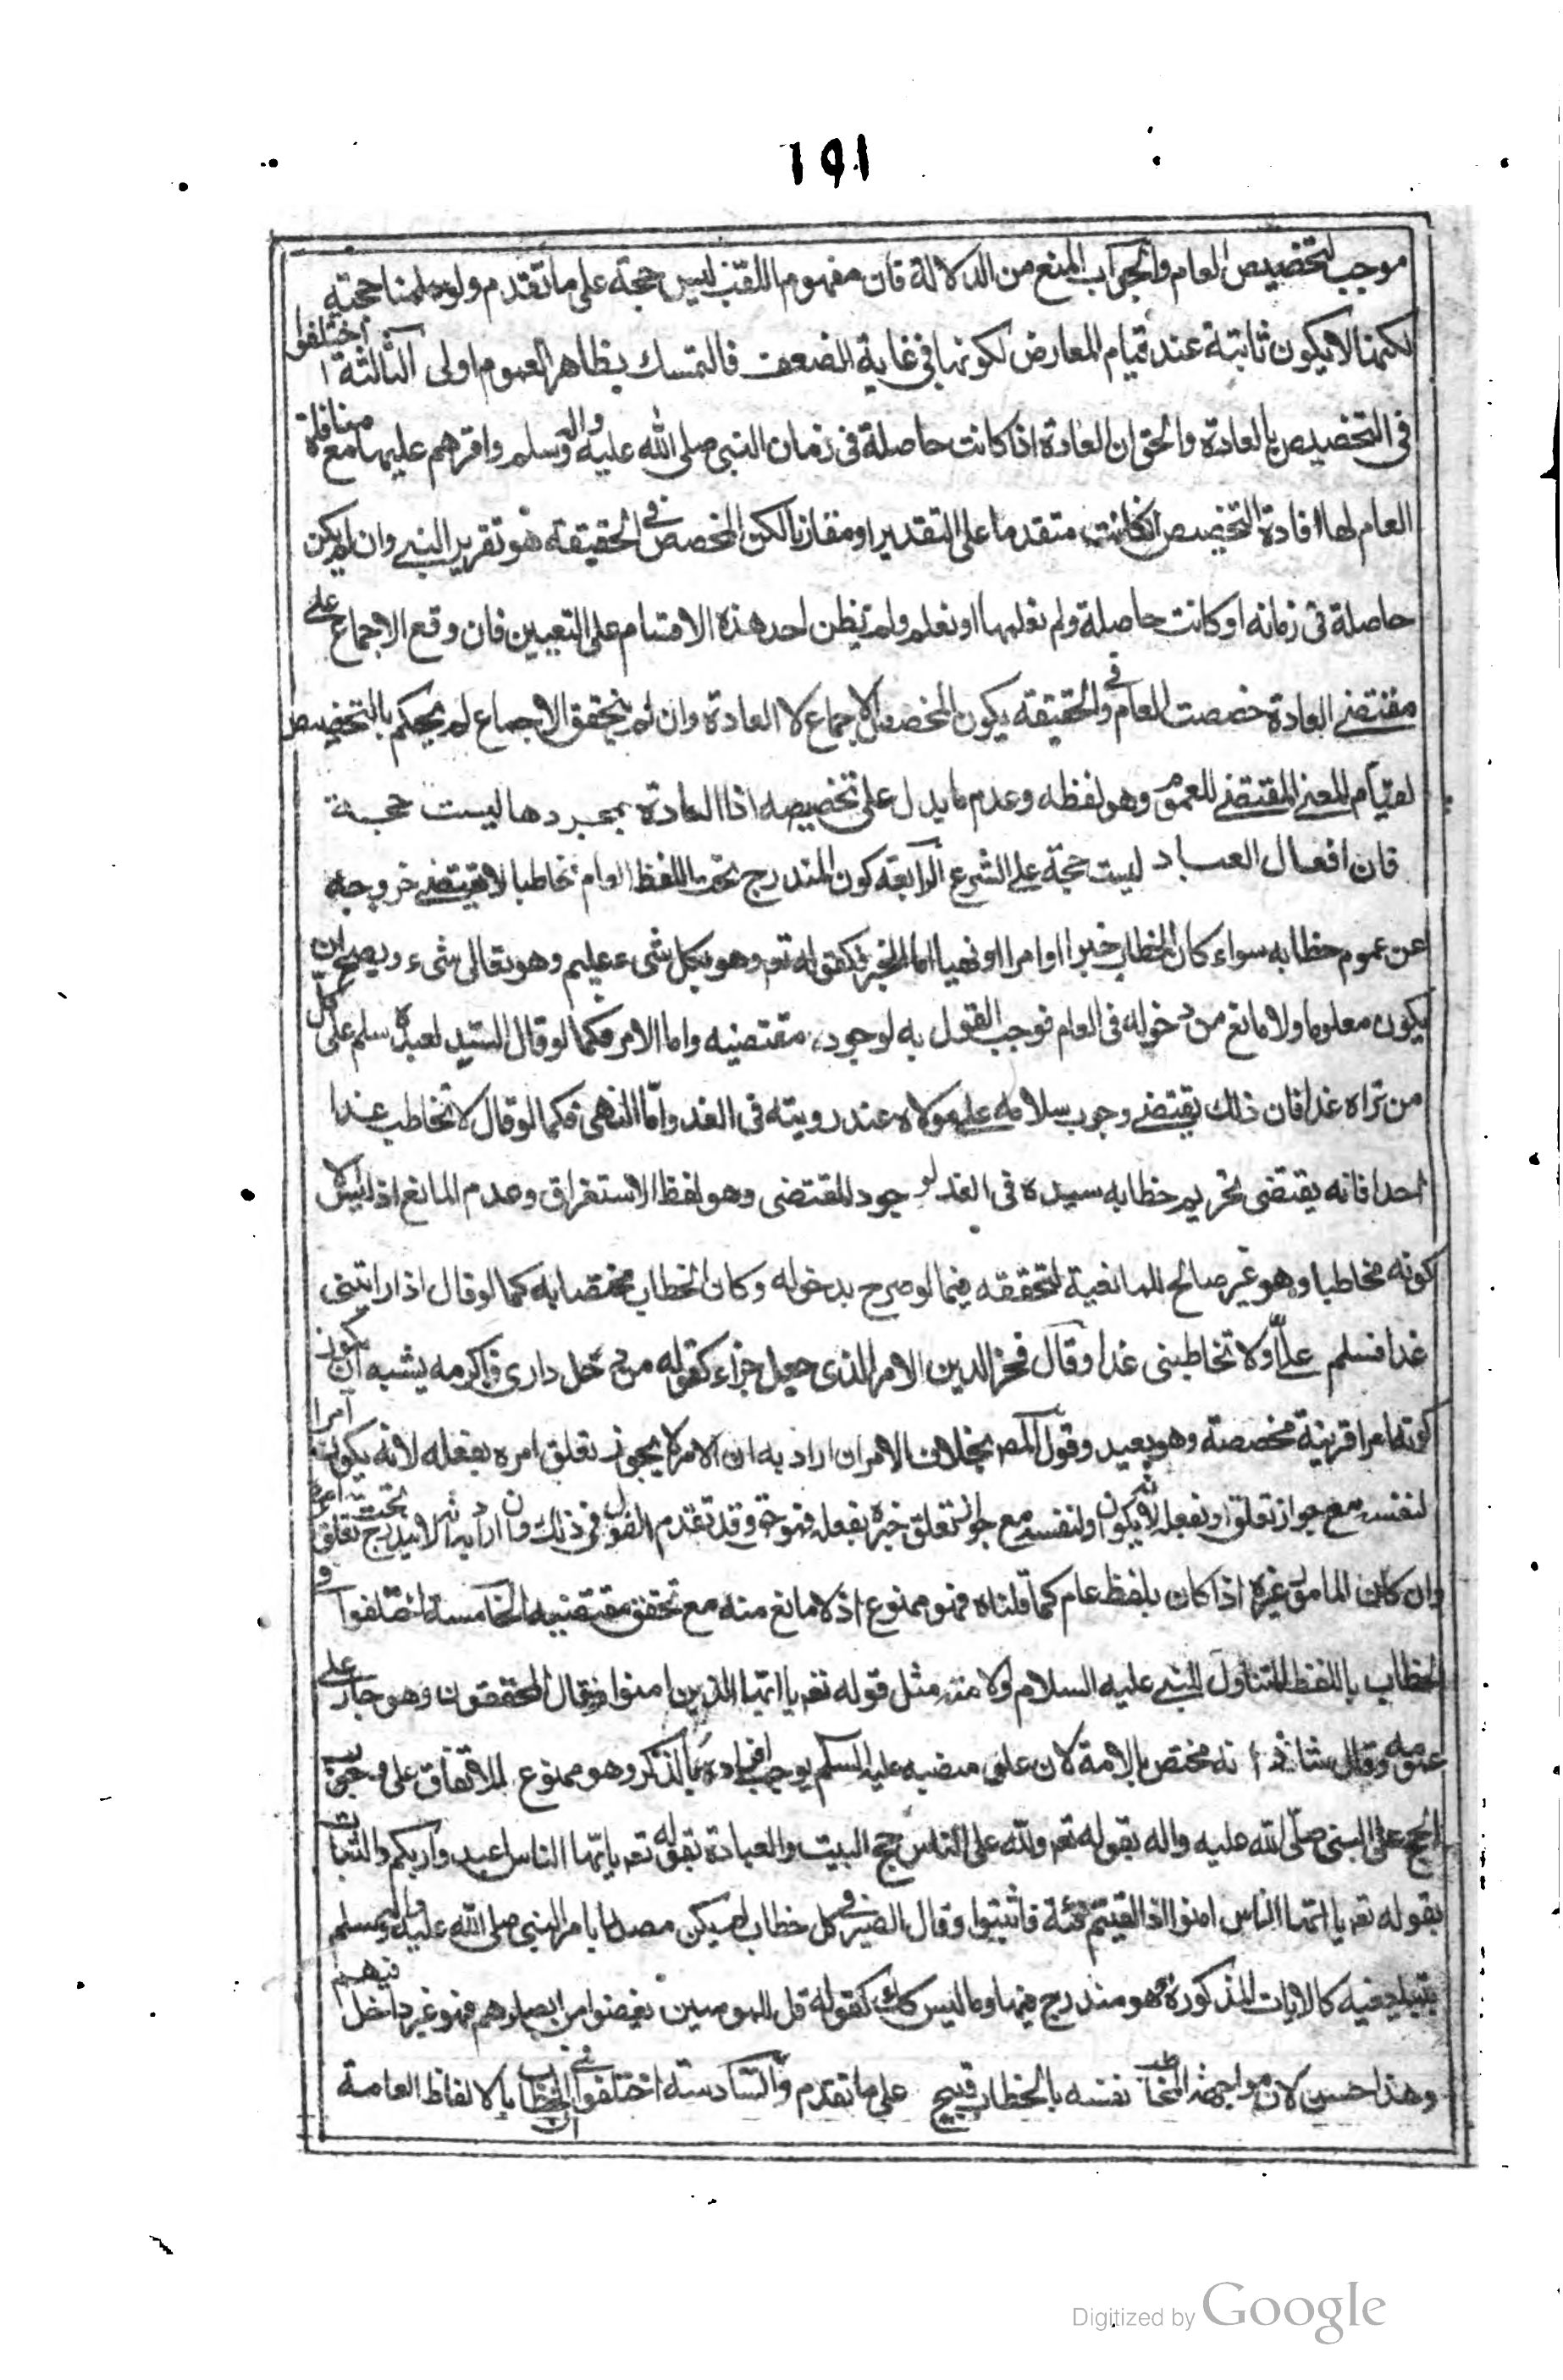 191
موجب لتخصيص العام والجواب المنع من الدلالة فان مفهوم اللقب ليس حجة على ما تقدم ولو سلمنا حجيته
لكنها لا يكون ثابتة عند قيام المعارض لكونها في غاية الضعف فالتمسك بظاهر العموم اولى الثالثة اختلفوا
في التخصيص بالعادة والحق ان العادة اذا كانت حاصلة في زمان النبي صلى الله عليه واله وسلم واقرهم عليها مع منافاة
العام لها افادة التخصيص ان كانت متقدما على التقدير او مقارنا لكن المخصص في الحقيقة هو تقرير النبي وان لم يكن
حاصلة في زمانه او كانت حاصلة ولم نعلمها او نعلم ولم يظن احد هذه الاقسام على التعيين فان وقع الاجماع على
مقتضى العادة خصصت العام وفي الحقيقة يكون المخصص الاجماع لا العادة وان لم يتحقق الاجماع لم يحكم بالتخصيص
لقيام المعنى المقتضى للعموم وهو لفظه وعدم ما يدل على تخصيصه اذا العادة بمجردها ليست حجة
فان افعال العباد ليست حجة على الشرع الرابعة كون المندرج تحت اللفظ العام مخاطبا لا يقتضى خروجه
عن عموم خطابه سواء كان الخطاب خبرا او امرا او نهيا اما الخبر فكقوله تع وهو بكل شىء عليم وهو تعالى شىء ويصح ان
يكون معلوما ولا مانع من دخوله في العام فوجب القول به لوجود مقتضيه واما الامر فكما لو قال السيد لعبده سلم على كل
من تراه غدا فان ذلك يقتضى وجوب سلامه على مولاه عند رويته في الغد وامّا النهى فكما لو قال لا تخاطب غدا
احدا فانه يقتضى تحريم خطابه سيده في الغد لوجود المقتضى وهو لفظ الاستغراق وعدم المانع اذ ليس الا
كونه مخاطبا وهو غير صالح للمانعية لتحققه فيما لو صرح بدخوله وكان الخطاب مختصا به كما لو قال اذا رايتنى
غدا فسلم علىّ ولا تخاطبنى غدا وقال فخر الدين الامر الذى جعل جزاء كقوله من دخل دارى فاكرمه يشبه ان يكون
كونه امرا قرينة مخصصة وهو بعيد وقول المص بخلاف الامر ان اراد به ان الامر لا يجوز تعلق امره بفعله لانه يكون امرا
لنفسه مع جواز تعلق خبره بفعله فهو حق وقد تقدم القول في ذلك وان اراد به انه لا يندرج تحت تعلق امره
وان كان المامور غيره اذا كان بلفظ عام كما قلناه فهو ممنوع اذ لا مانع منه مع تحقق مقتضيه الخامسة اختلفوا في
الخطاب باللفظ المتناول للنبى عليه السلام ولامته مثل قوله تع يا ايّها الذين امنوا فقال المحققون وهو جار على
عمومه وقال شاذ انه مختص بالامة لان علو منصبه عليه السلم يوجب افراده بالذكر وهو ممنوع للاتفاق على وجوب
الحج على النبى صلّى الله عليه واله بقوله تع ولله على الناس حج البيت والعبادة بقوله تع يا ايّها الناس اعبدوا ربكم والثبات
بقوله تع يا ايّها الناس امنوا اذا لقيتم فئة فاثبتوا وقال الصيرفى كل خطاب لم يكن مصدرا بامر النبى صلى الله عليه واله وسلم
بتبليغه كالايات المذكورة هو مندرج فيها وما ليس كك كقوله قل للمومنين يغضوا من ابصارهم فهو غير داخل فيهم
وهذا حسن لان مواجهة المخاطب نفسه بالخطاب قبيح على ما تقدم والسادسة اختلفوا في ان الخطاب بالالفاظ العامة
Digitized by Google